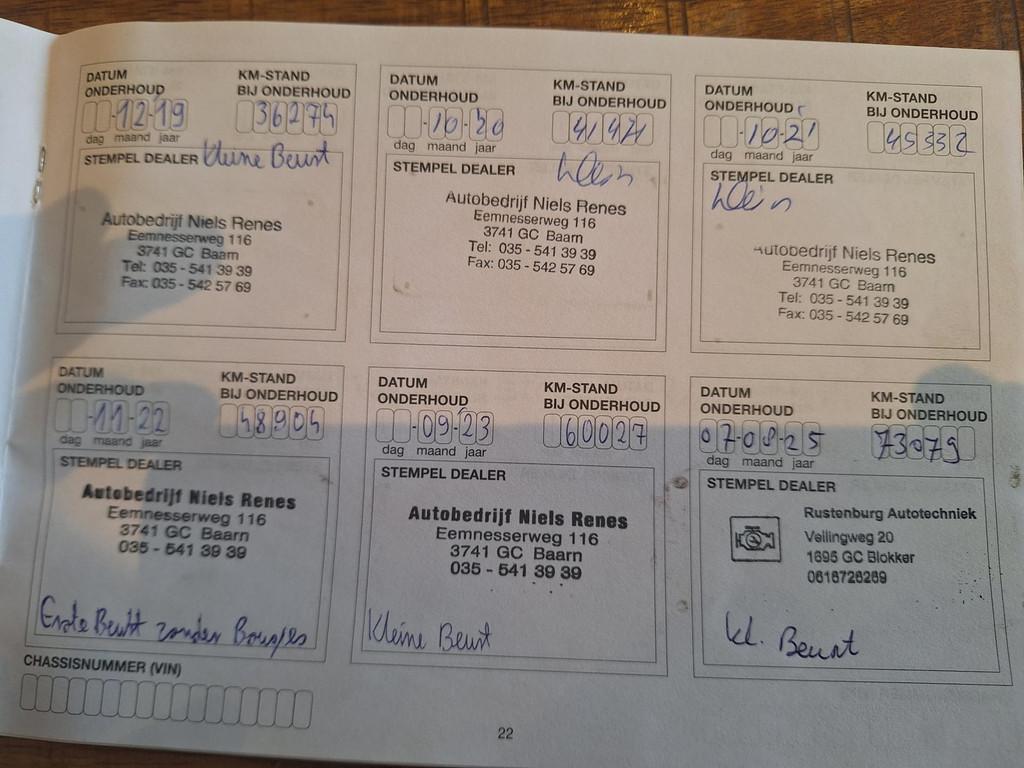 DATUM ONDERHOUD
KM-STAND BIJ ONDERHOUD
-12-19
36274
dag maand jaar
STEMPEL DEALER Kleine Beurt
Autobedrijf Niels Renes
Eemnesserweg 116
3741 GC Baarn
Tel: 035 - 541 39 39
Fax: 035 - 542 57 69
DATUM ONDERHOUD
KM-STAND BIJ ONDERHOUD
-10-20
41471
dag maand jaar
STEMPEL DEALER
Autobedrijf Niels Renes
Eemnesserweg 116
3741 GC Baarn
Tel: 035 - 541 39 39
Fax: 035 - 542 57 69
DATUM ONDERHOUD
KM-STAND BIJ ONDERHOUD
-10-21
45332
dag maand jaar
STEMPEL DEALER
Klein
Autobedrijf Niels Renes
Eemnesserweg 116
3741 GC Baarn
Tel: 035 - 541 39 39
Fax: 035 - 542 57 69
DATUM ONDERHOUD
KM-STAND BIJ ONDERHOUD
-11-22
48904
dag maand jaar
STEMPEL DEALER
Autobedrijf Niels Renes
Eemnesserweg 116
3741 GC Baarn
035 - 541 39 39
Grote Beurt zonder Bougies
DATUM ONDERHOUD
KM-STAND BIJ ONDERHOUD
-09-23
60027
dag maand jaar
STEMPEL DEALER
Autobedrijf Niels Renes
Eemnesserweg 116
3741 GC Baarn
035 - 541 39 39
Kleine Beurt
DATUM ONDERHOUD
KM-STAND BIJ ONDERHOUD
07-08-25
73079
dag maand jaar
STEMPEL DEALER
Rustenburg Autotechniek
Veilingweg 20
1695 GC Blokker
0616728269
kl. Beurt
CHASSISNUMMER (VIN)
22